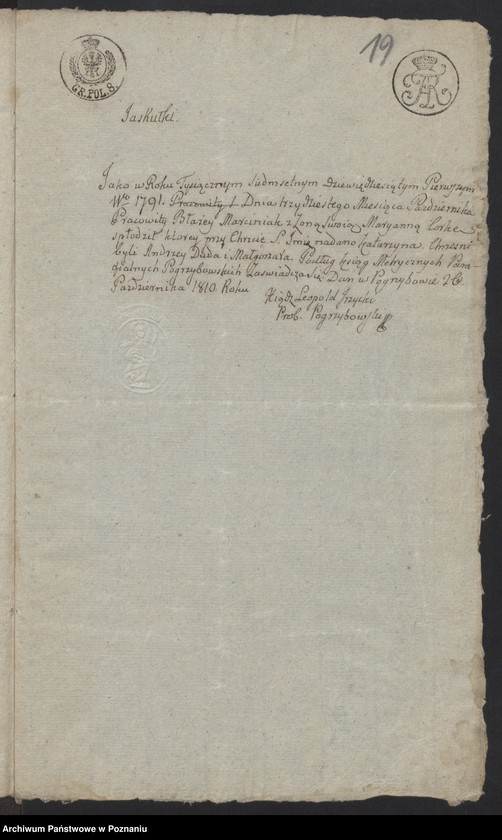 19
GR.POL.8.
FAR
Jaskułki.
Jako w Roku Tysiącznym Siedmsetnym Dziewiędziesiątym Pierwszym
Wo 1791. Pracowity Dnia trzydziestego Miesiąca Października
Pracowity Błażey Marciniak z Żoną Swoią Maryanną Corkę
spłodził ktorey przy Chrzcie S. Imię nadano Katarzyna. Chrzesni
byli Andrzey Duda i Małgorzata. Podług Xsiąg Metrycznych Para-
fialnych Pogrzybowskich Zaswiadcza się Dan w Pogrzybowie 26
Pazdziernika 1810. Roku
Xiądz Leopold
Prob. Pogrzybowski
Archiwum Państwowe w Poznaniu